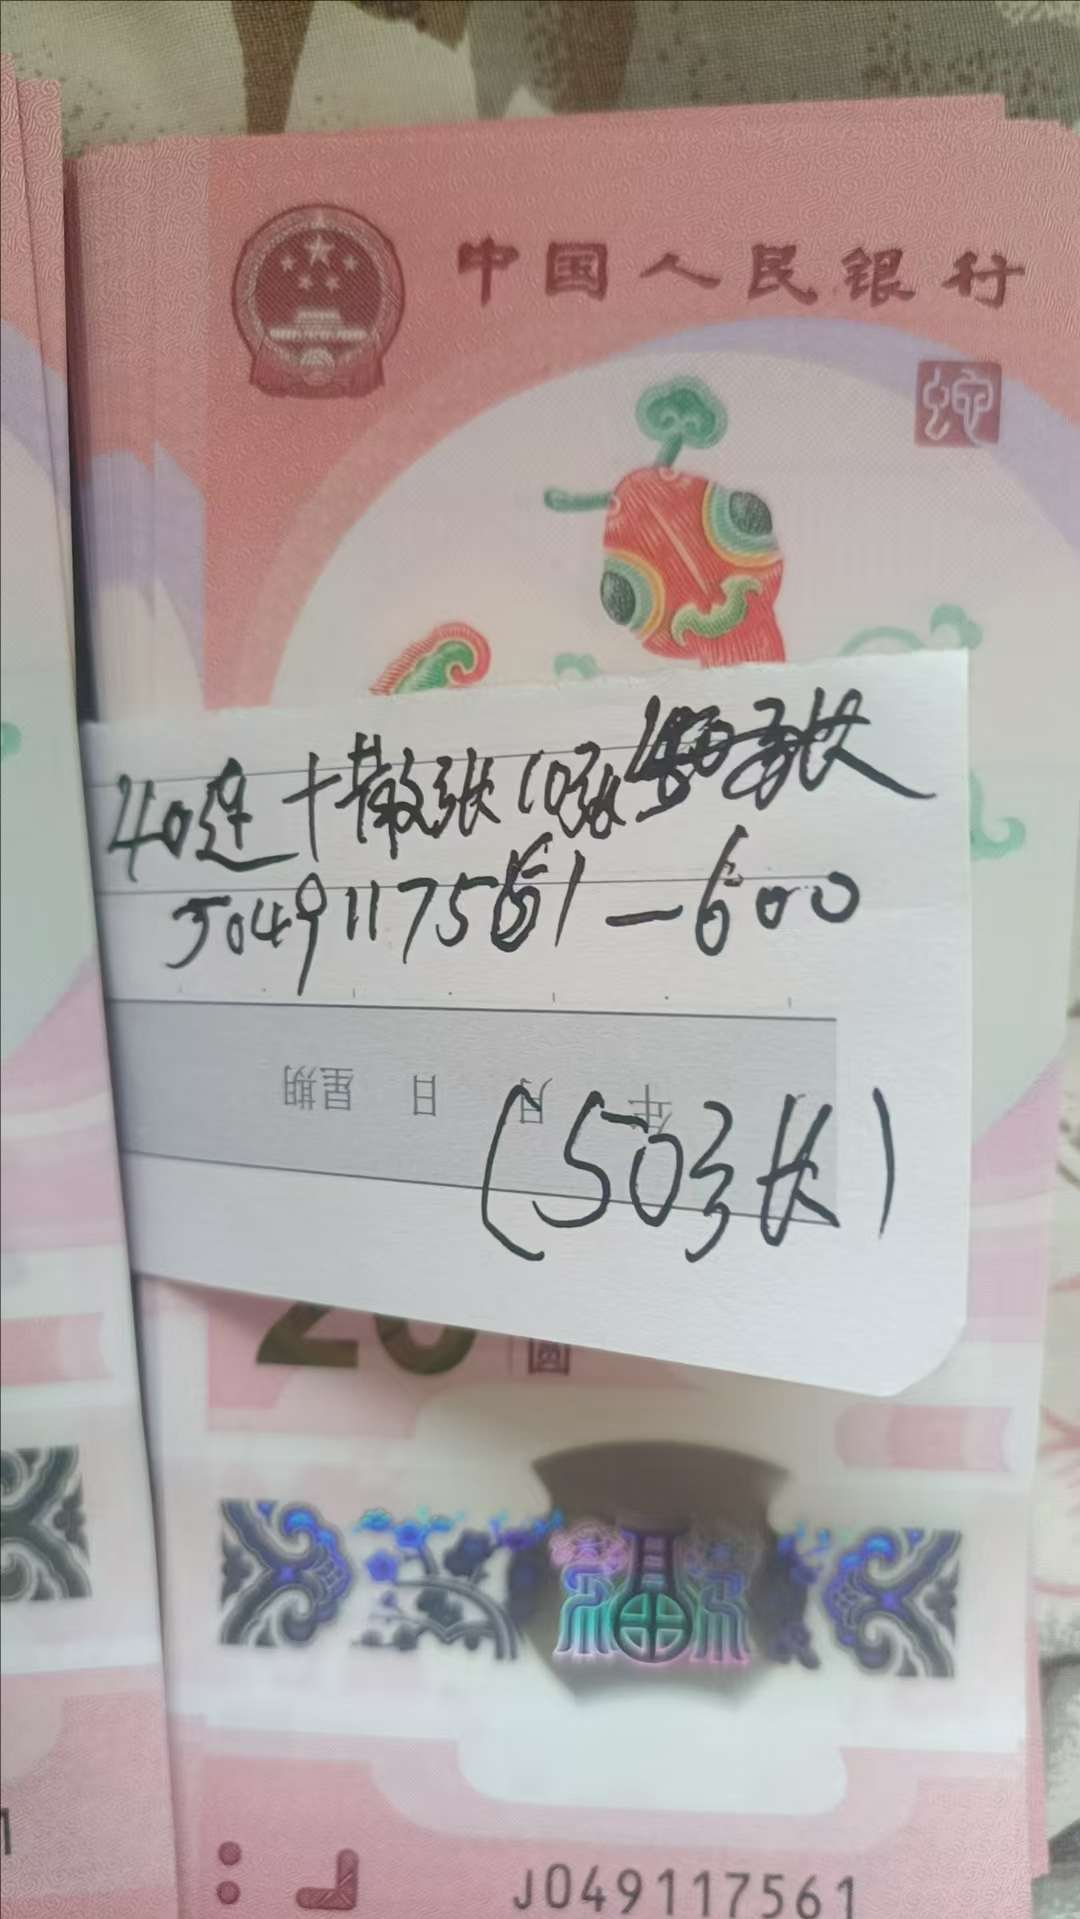 中国人民银行
蛇
40连+散张10张
J049117561—600
年 月 日 星期
(50张)
20 圆
J049117561
1